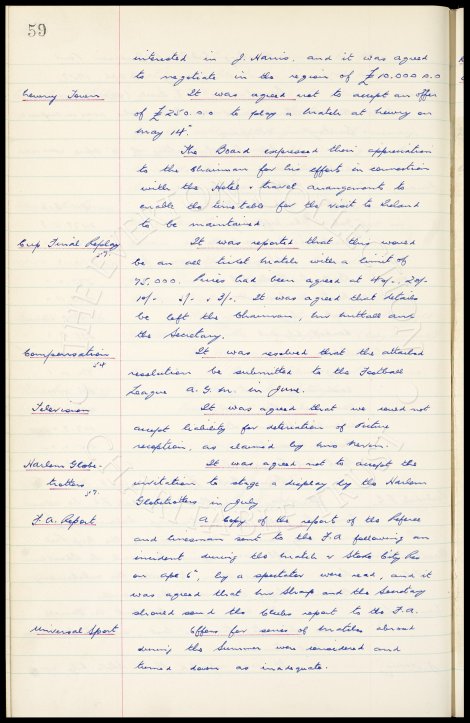 59
interested in J. Harris, and it was agreed
to negotiate in the region of £10,000.0.0
Newry Town It was agreed not to accept an offer
of £250.0.0 to play a match at Newry on
May 14th.
The Board expressed their appreciation
to the Chairman for his efforts in connection
with the Hotel & travel arrangements to
enable the timetable for the visit to Ireland
to be maintained.
Cup Final Replay It was reported that this would
be an all ticket match with a limit of
75,000. Prices had been agreed at 40/-, 20/-
10/- 5/- & 3/-. It was agreed that details
be left the Chairman, Mr Nuttall and
the Secretary.
Compensation It was resolved that the attached
resolution be submitted to the Football
League A.G.M. in June.
Television It was agreed that we could not
accept liability for deterioration of Picture
reception, as claimed by Mrs
Harlem Globe- It was agreed not to accept the
trotters invitation to stage a display by the Harlem
Globetrotters in July
F.A. Report A copy of the report of the Referee
and Linesman sent to the F.A following an
incident during the match v Stoke City Res
on Apl 6th, by a spectator were read, and it
was agreed that Mr Sharp and the Secretary
should send the Clubs report to the F.A.
Universal Sport Offers for series of matches abroad
during the Summer were considered and
turned down as inadequate.